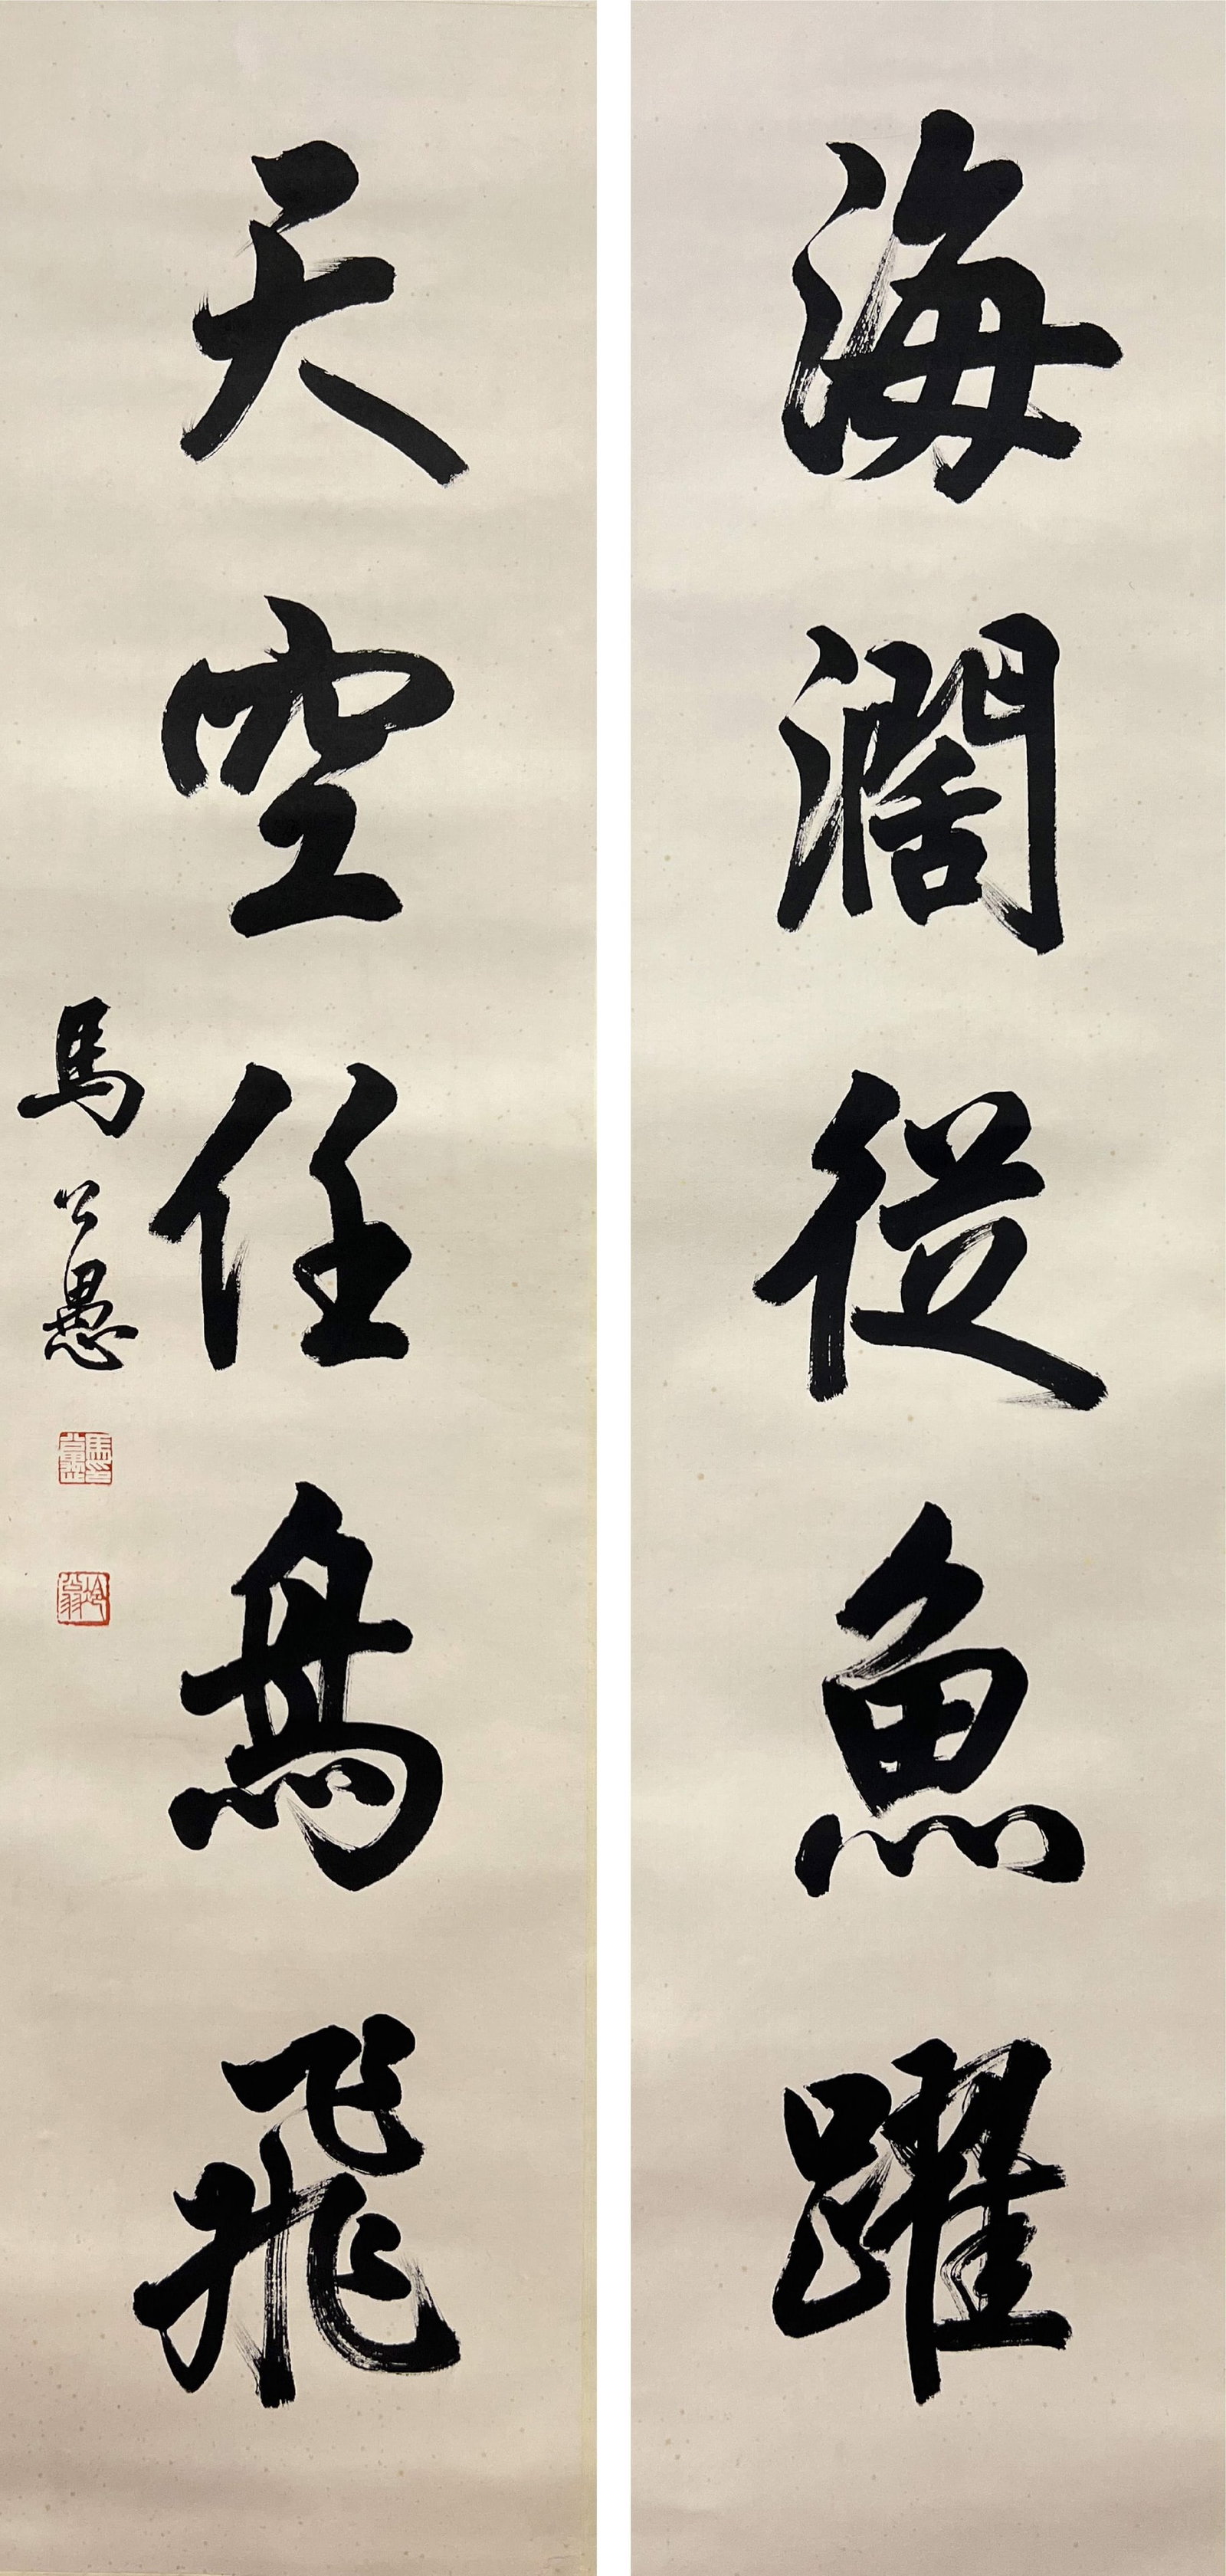 海濶從魚躍
天空任鳥飛
馬公愚